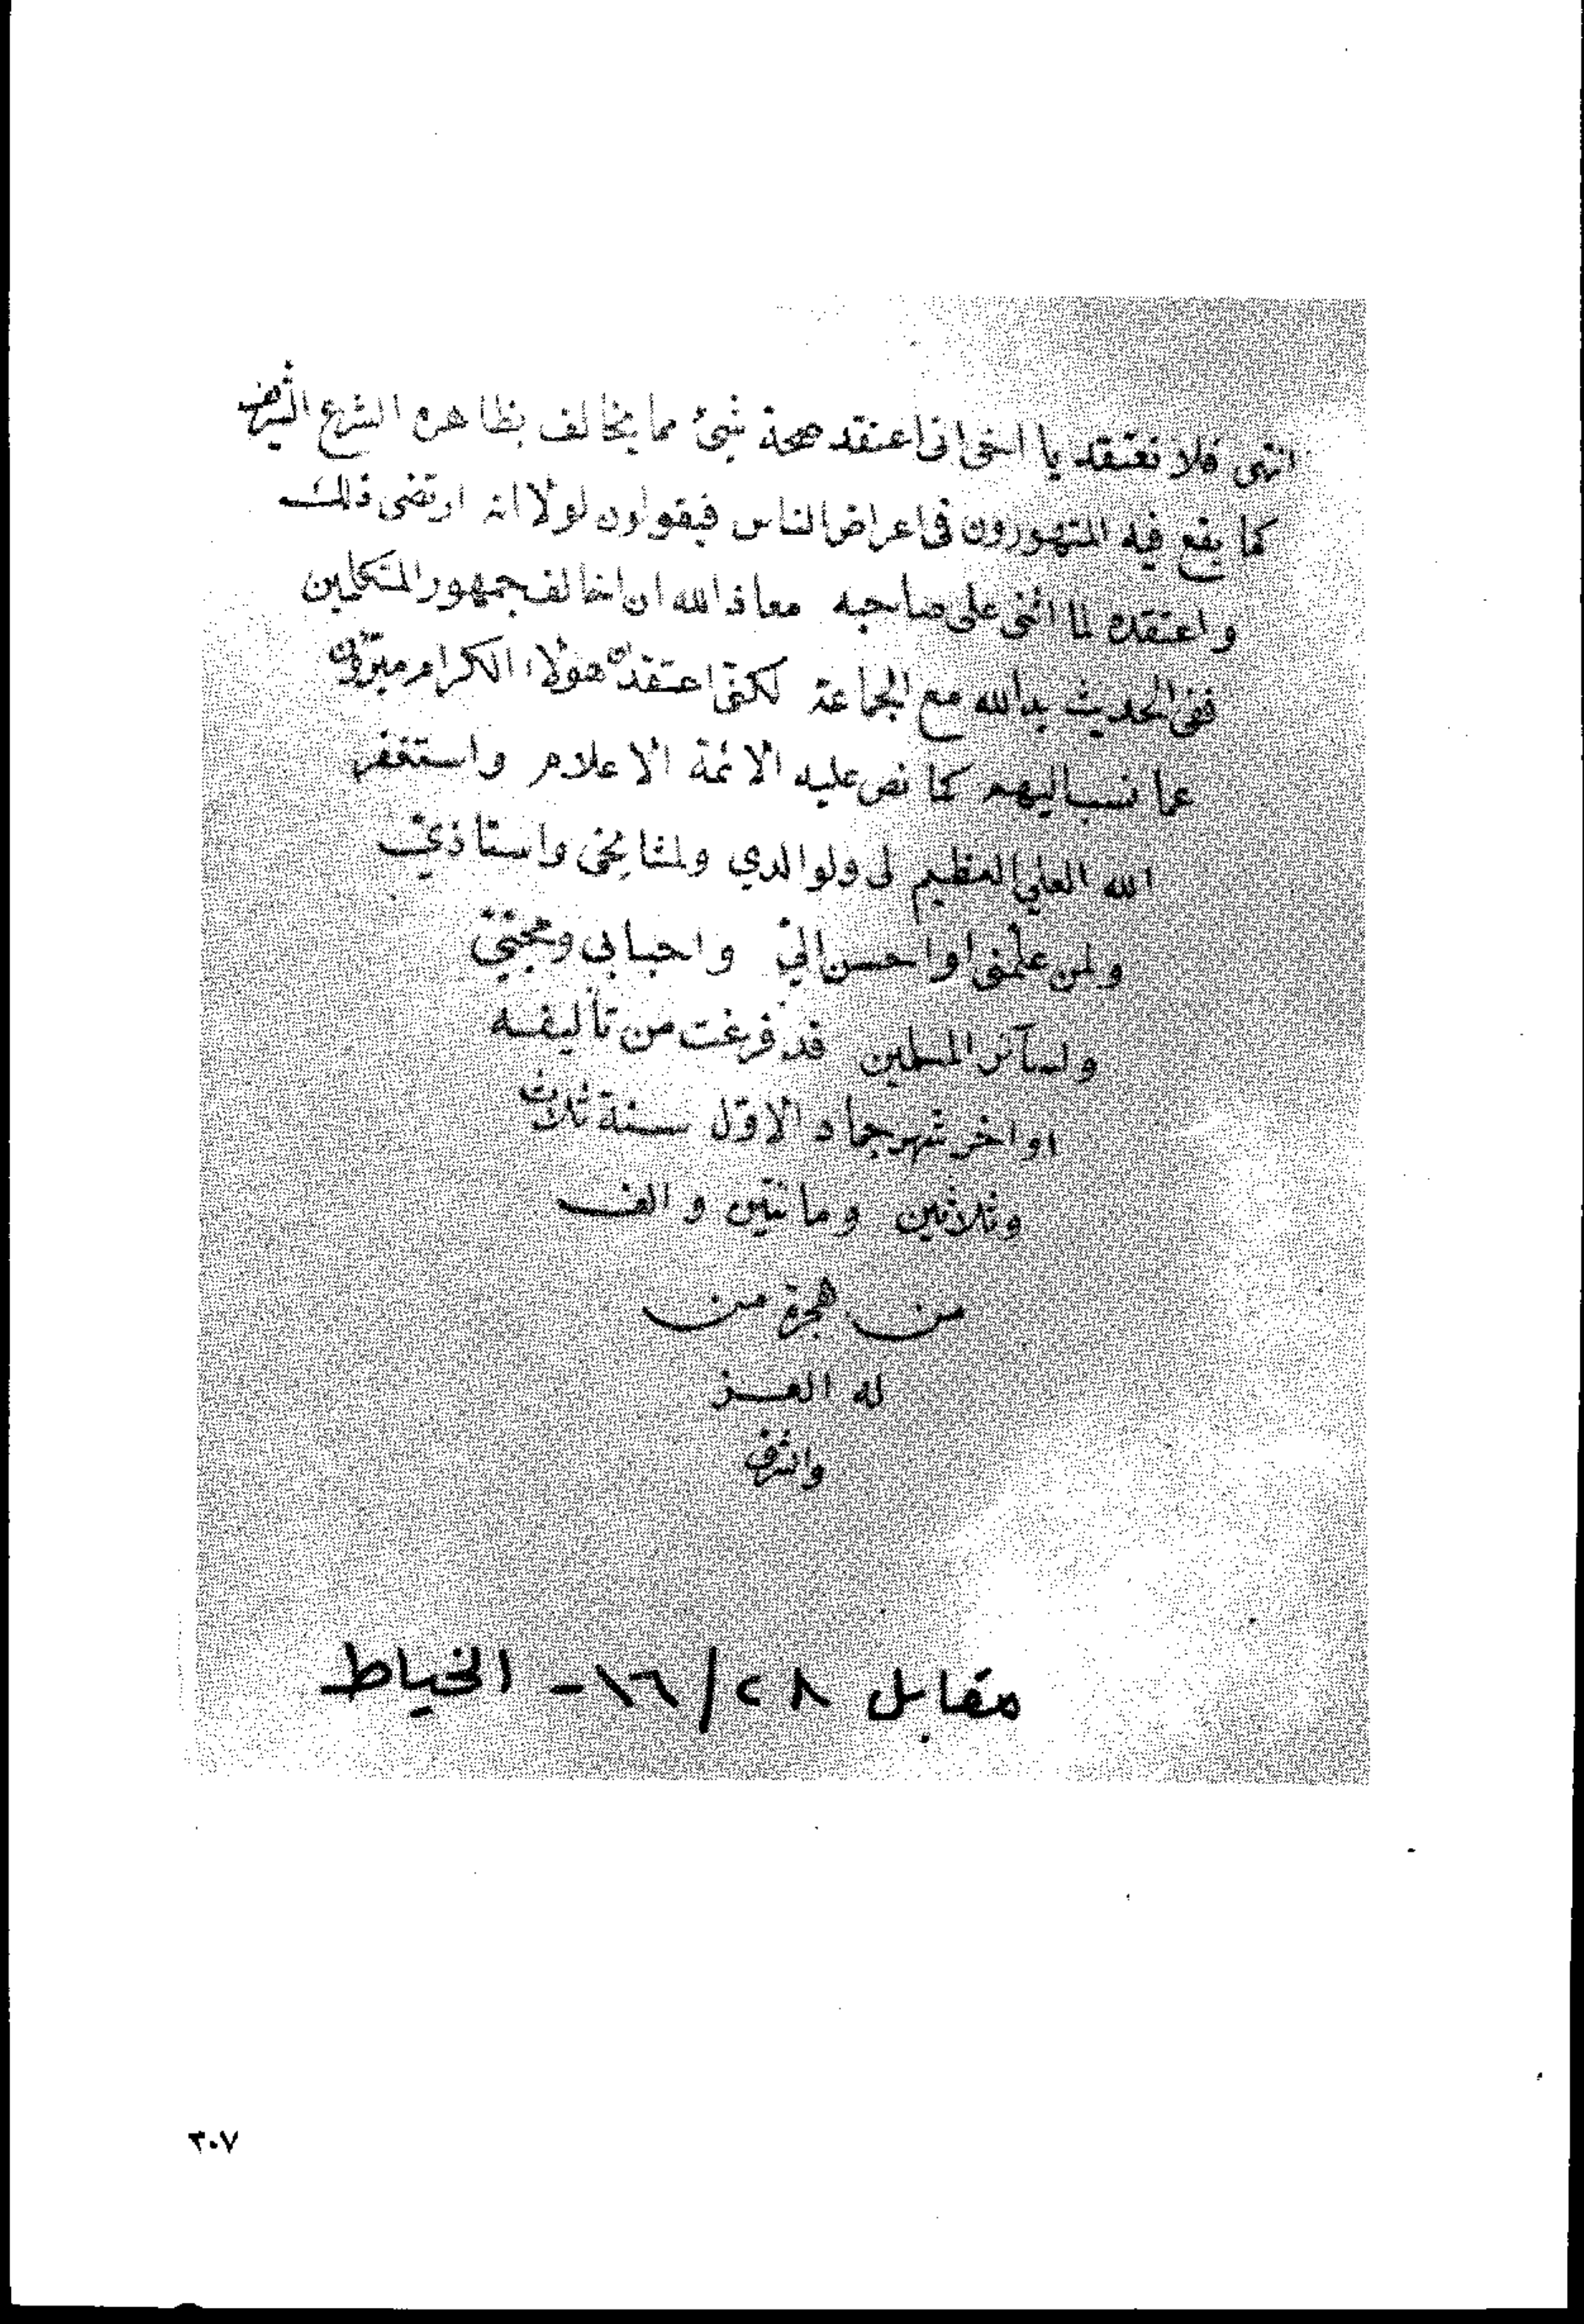 انتهى فلا تعتقد يا اخى انى اعتقد صحة شئ مما يخالف بظاهره الشرع الشريف
كما يقع فيه المتهورون فى اعراض الناس فيقولون لولا انه ارتضى ذلك
واعتقده لما اثنى على صاحبه معاذ الله ان اخالف جمهور المتكلمين
ففى الحديث يد الله مع الجماعة لكنى اعتقد ان هؤلاء الكرام مبرؤن
عما نسب اليهم كما نص عليه الائمة الاعلام واستغفر
الله العلي العظيم لى ولوالدي ولمشايخى واستاذيّ
ولمن علّمنى او احسن اليّ واحبابى ومحبّيّ
ولسآئر المسلمين قد فرغت من تأليفه
اواخر شهر جماد الاوّل سنة ثلاث
وثلاثين ومائتين والف
من هجرة من
له العز
والشرف
مقابل ٢٨/١٦ - الخياط
٣٠٧